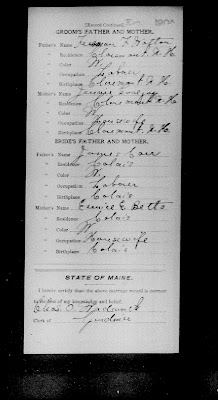 (Record Continued)
GROOM'S FATHER AND MOTHER.
Father's Name
" Residence Claremont N.H.
" Color W
" Occupation Laborer
" Birthplace Claremont N.H.
Mother's Name
" Residence Claremont N.H.
" Color W
" Occupation Housewife
" Birthplace Claremont N.H.
BRIDE'S FATHER AND MOTHER.
Father's Name James Carr
" Residence Calais
" Color W
" Occupation Laborer
" Birthplace Calais
Mother's Name Eunice E Betts
" Residence Calais
" Color W
" Occupation Housewife
" Birthplace Calais
STATE OF MAINE.
I hereby certify that the above marriage record is correct
to the best of my knowledge and belief.
Chas. O.
Clerk of Gardiner